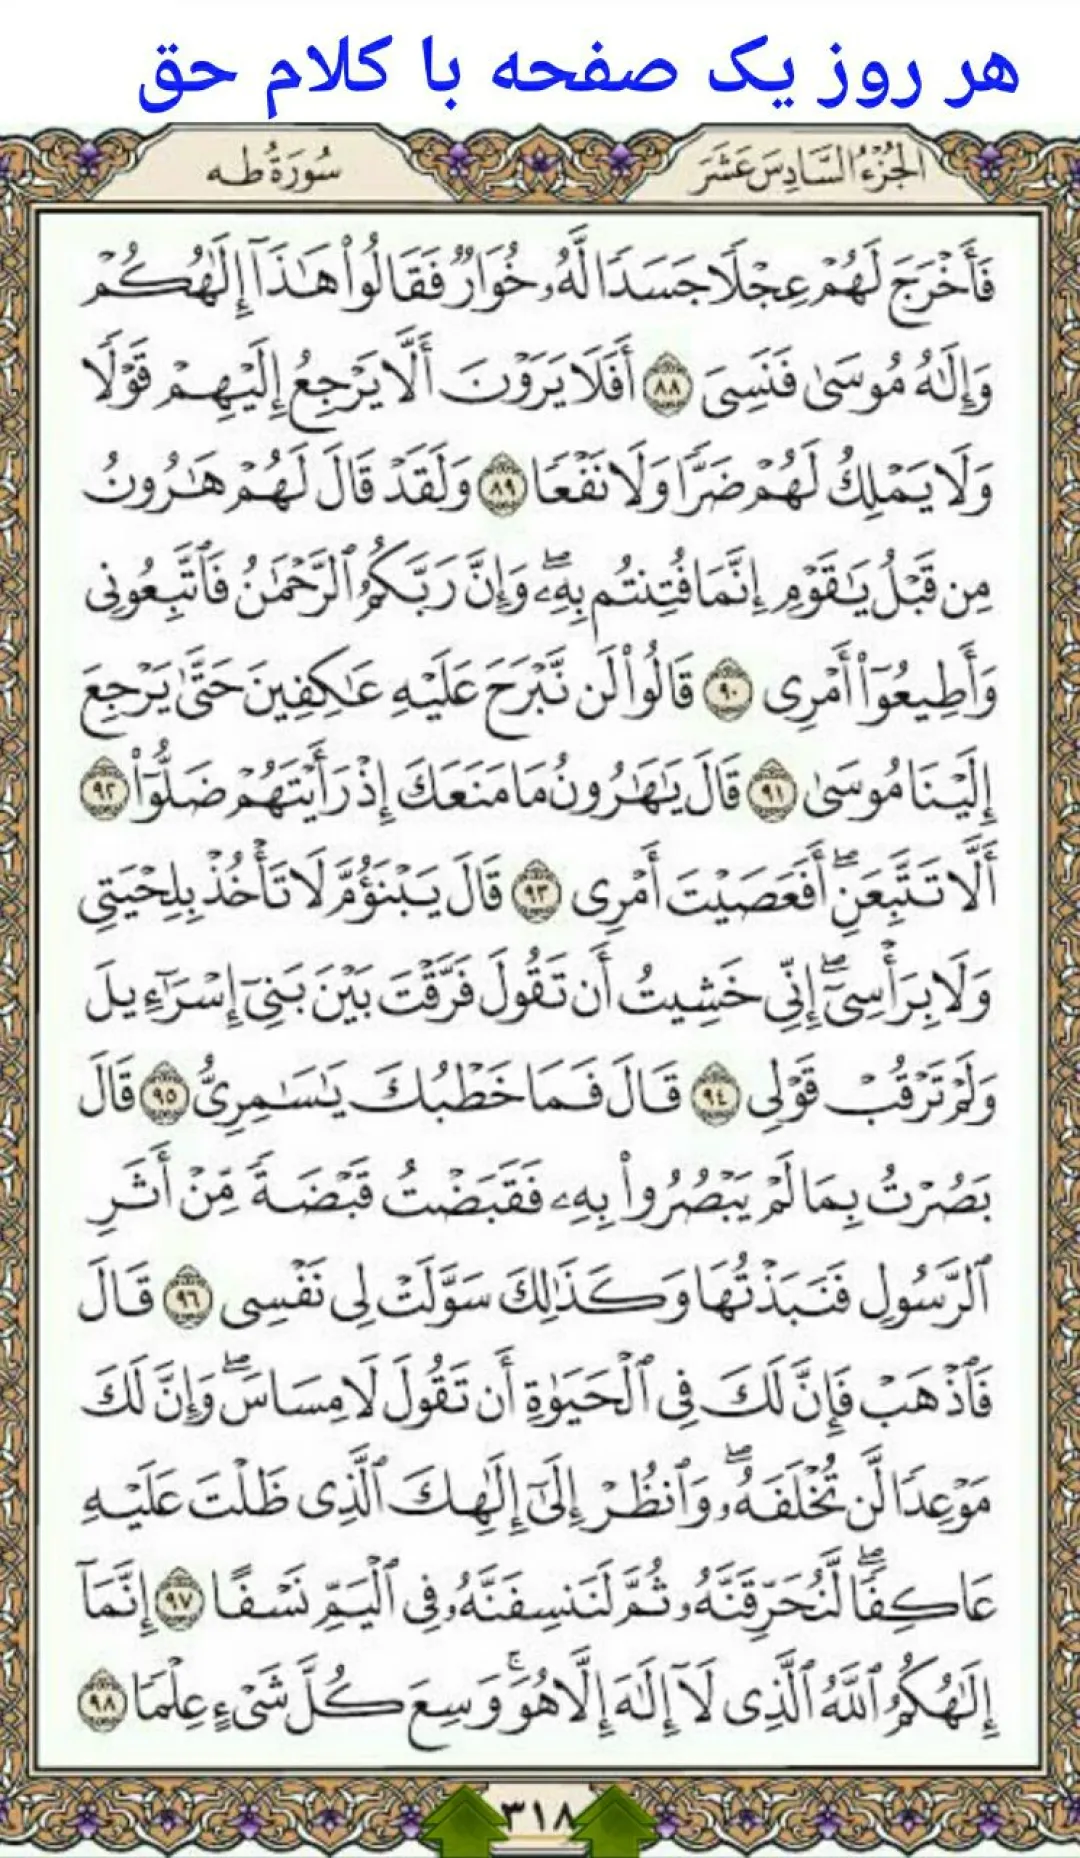 هر روز یک صفحه با کلام حق
الجُزْءُ السَّادِسَ عَشَرَ
سُورَةُ طه
فَأَخْرَجَ لَهُمْ عِجْلًا جَسَدًا لَّهُۥ خُوَارٌ فَقَالُوا۟ هَٰذَآ إِلَٰهُكُمْ
وَإِلَٰهُ مُوسَىٰ فَنَسِىَ ٨٨ أَفَلَا يَرَوْنَ أَلَّا يَرْجِعُ إِلَيْهِمْ قَوْلًا
وَلَا يَمْلِكُ لَهُمْ ضَرًّا وَلَا نَفْعًا ٨٩ وَلَقَدْ قَالَ لَهُمْ هَٰرُونُ
مِن قَبْلُ يَٰقَوْمِ إِنَّمَا فُتِنتُم بِهِۦ ۖ وَإِنَّ رَبَّكُمُ ٱلرَّحْمَٰنُ فَٱتَّبِعُونِى
وَأَطِيعُوٓا۟ أَمْرِى ٩٠ قَالُوا۟ لَن نَّبْرَحَ عَلَيْهِ عَٰكِفِينَ حَتَّىٰ يَرْجِعَ
إِلَيْنَا مُوسَىٰ ٩١ قَالَ يَٰهَٰرُونُ مَا مَنَعَكَ إِذْ رَأَيْتَهُمْ ضَلُّوٓا۟ ٩٢
أَلَّا تَتَّبِعَنِ ۖ أَفَعَصَيْتَ أَمْرِى ٩٣ قَالَ يَبْنَؤُمَّ لَا تَأْخُذْ بِلِحْيَتِى
وَلَا بِرَأْسِىٓ ۖ إِنِّى خَشِيتُ أَن تَقُولَ فَرَّقْتَ بَيْنَ بَنِىٓ إِسْرَٰٓءِيلَ
وَلَمْ تَرْقُبْ قَوْلِى ٩٤ قَالَ فَمَا خَطْبُكَ يَٰسَٰمِرِىُّ ٩٥ قَالَ
بَصُرْتُ بِمَا لَمْ يَبْصُرُوا۟ بِهِۦ فَقَبَضْتُ قَبْضَةً مِّنْ أَثَرِ
ٱلرَّسُولِ فَنَبَذْتُهَا وَكَذَٰلِكَ سَوَّلَتْ لِى نَفْسِى ٩٦ قَالَ
فَٱذْهَبْ فَإِنَّ لَكَ فِى ٱلْحَيَوٰةِ أَن تَقُولَ لَا مِسَاسَ ۖ وَإِنَّ لَكَ
مَوْعِدًا لَّن تُخْلَفَهُۥ ۖ وَٱنظُرْ إِلَىٰٓ إِلَٰهِكَ ٱلَّذِى ظَلْتَ عَلَيْهِ
عَاكِفًا ۖ لَّنُحَرِّقَنَّهُۥ ثُمَّ لَنَنسِفَنَّهُۥ فِى ٱلْيَمِّ نَسْفًا ٩٧ إِنَّمَآ
إِلَٰهُكُمُ ٱللَّهُ ٱلَّذِى لَآ إِلَٰهَ إِلَّا هُوَ ۚ وَسِعَ كُلَّ شَىْءٍ عِلْمًا ٩٨
٣١٨